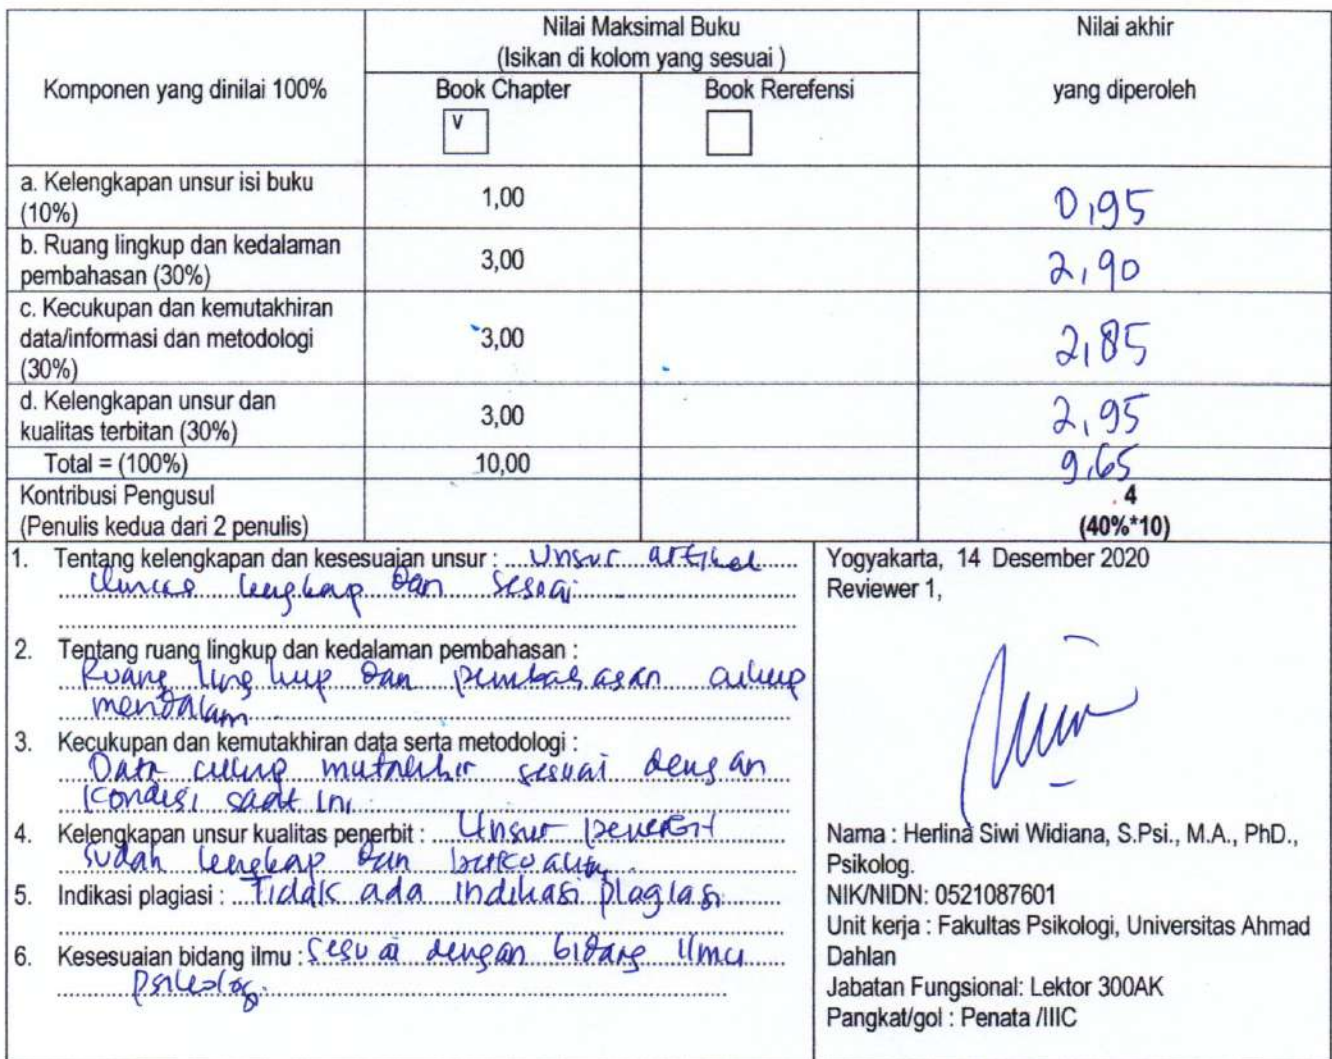 Komponen yang dinilai 100%
Nilai Maksimal Buku
(Isikan di kolom yang sesuai )
Nilai akhir
yang diperoleh
Book Chapter
V
Book Rerefensi
a. Kelengkapan unsur isi buku
(10%)
1,00
0,95
b. Ruang lingkup dan kedalaman
pembahasan (30%)
3,00
2,90
c. Kecukupan dan kemutakhiran
data/informasi dan metodologi
(30%)
3,00
2,85
d. Kelengkapan unsur dan
kualitas terbitan (30%)
3,00
2,95
Total = (100%)
10,00
9,65
Kontribusi Pengusul
(Penulis kedua dari 2 penulis)
4
(40%*10)
1. Tentang kelengkapan dan kesesuaian unsur : Unsur artikel
lengkap dan sesuai
2. Tentang ruang lingkup dan kedalaman pembahasan :
Ruang lingkup dan pembahasan cukup
mendalam
3. Kecukupan dan kemutakhiran data serta metodologi :
Data cukup mutakhir sesuai dengan
kondisi saat ini
4. Kelengkapan unsur kualitas penerbit : Unsur penerbit
sudah lengkap dan
5. Indikasi plagiasi : Tidak ada indikasi plagiasi
6. Kesesuaian bidang ilmu : Sesuai dengan bidang ilmu
psikologi
Yogyakarta, 14 Desember 2020
Reviewer 1,
Nama : Herlina Siwi Widiana, S.Psi., M.A., PhD.,
Psikolog.
NIK/NIDN: 0521087601
Unit kerja : Fakultas Psikologi, Universitas Ahmad
Dahlan
Jabatan Fungsional: Lektor 300AK
Pangkat/gol : Penata /IIIC